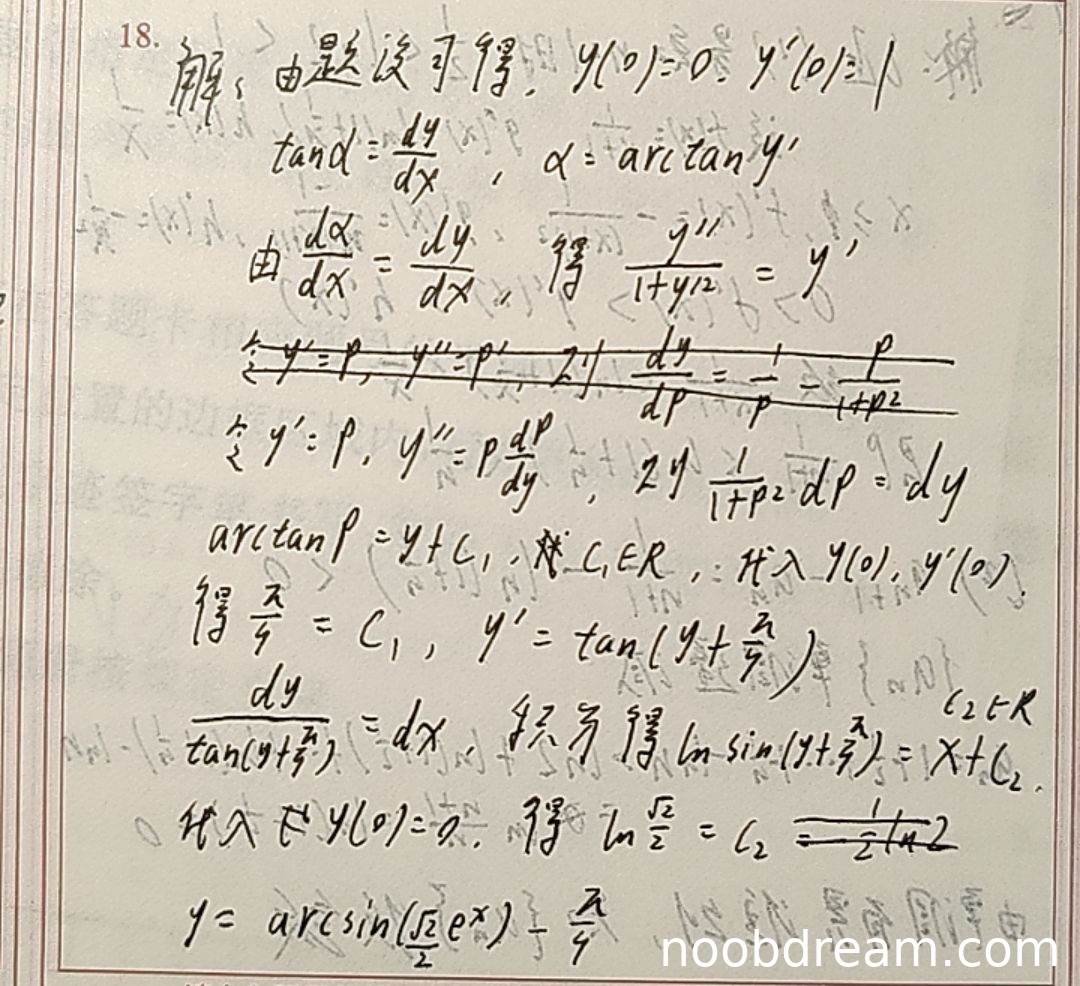 18.
解: 由题设可得, y(0)=0, y'(0)=1
tanα = dy/dx, α = arctan y'
由 dα/dx = dy/dx, 得 y''/(1+y'²) = y'
令 y'=p, y''=p', 则 dy/dp = 1/p = p/(1+p²)
令 y'=p, y''=p dp/dy, 则 1/(1+p²) dp = dy
arctan p = y+C₁, C₁∈R, 代入 y(0), y'(0),
得 π/4 = C₁, y' = tan(y+π/4)
dy/tan(y+π/4) = dx, 积分得 ln sin(y+π/4) = x+C₂. C₂∈R
代入 y(0)=0, 得 ln √2/2 = C₂ = 1/2 ln2
y = arcsin(√2/2 eˣ) - π/4
noobdream.com